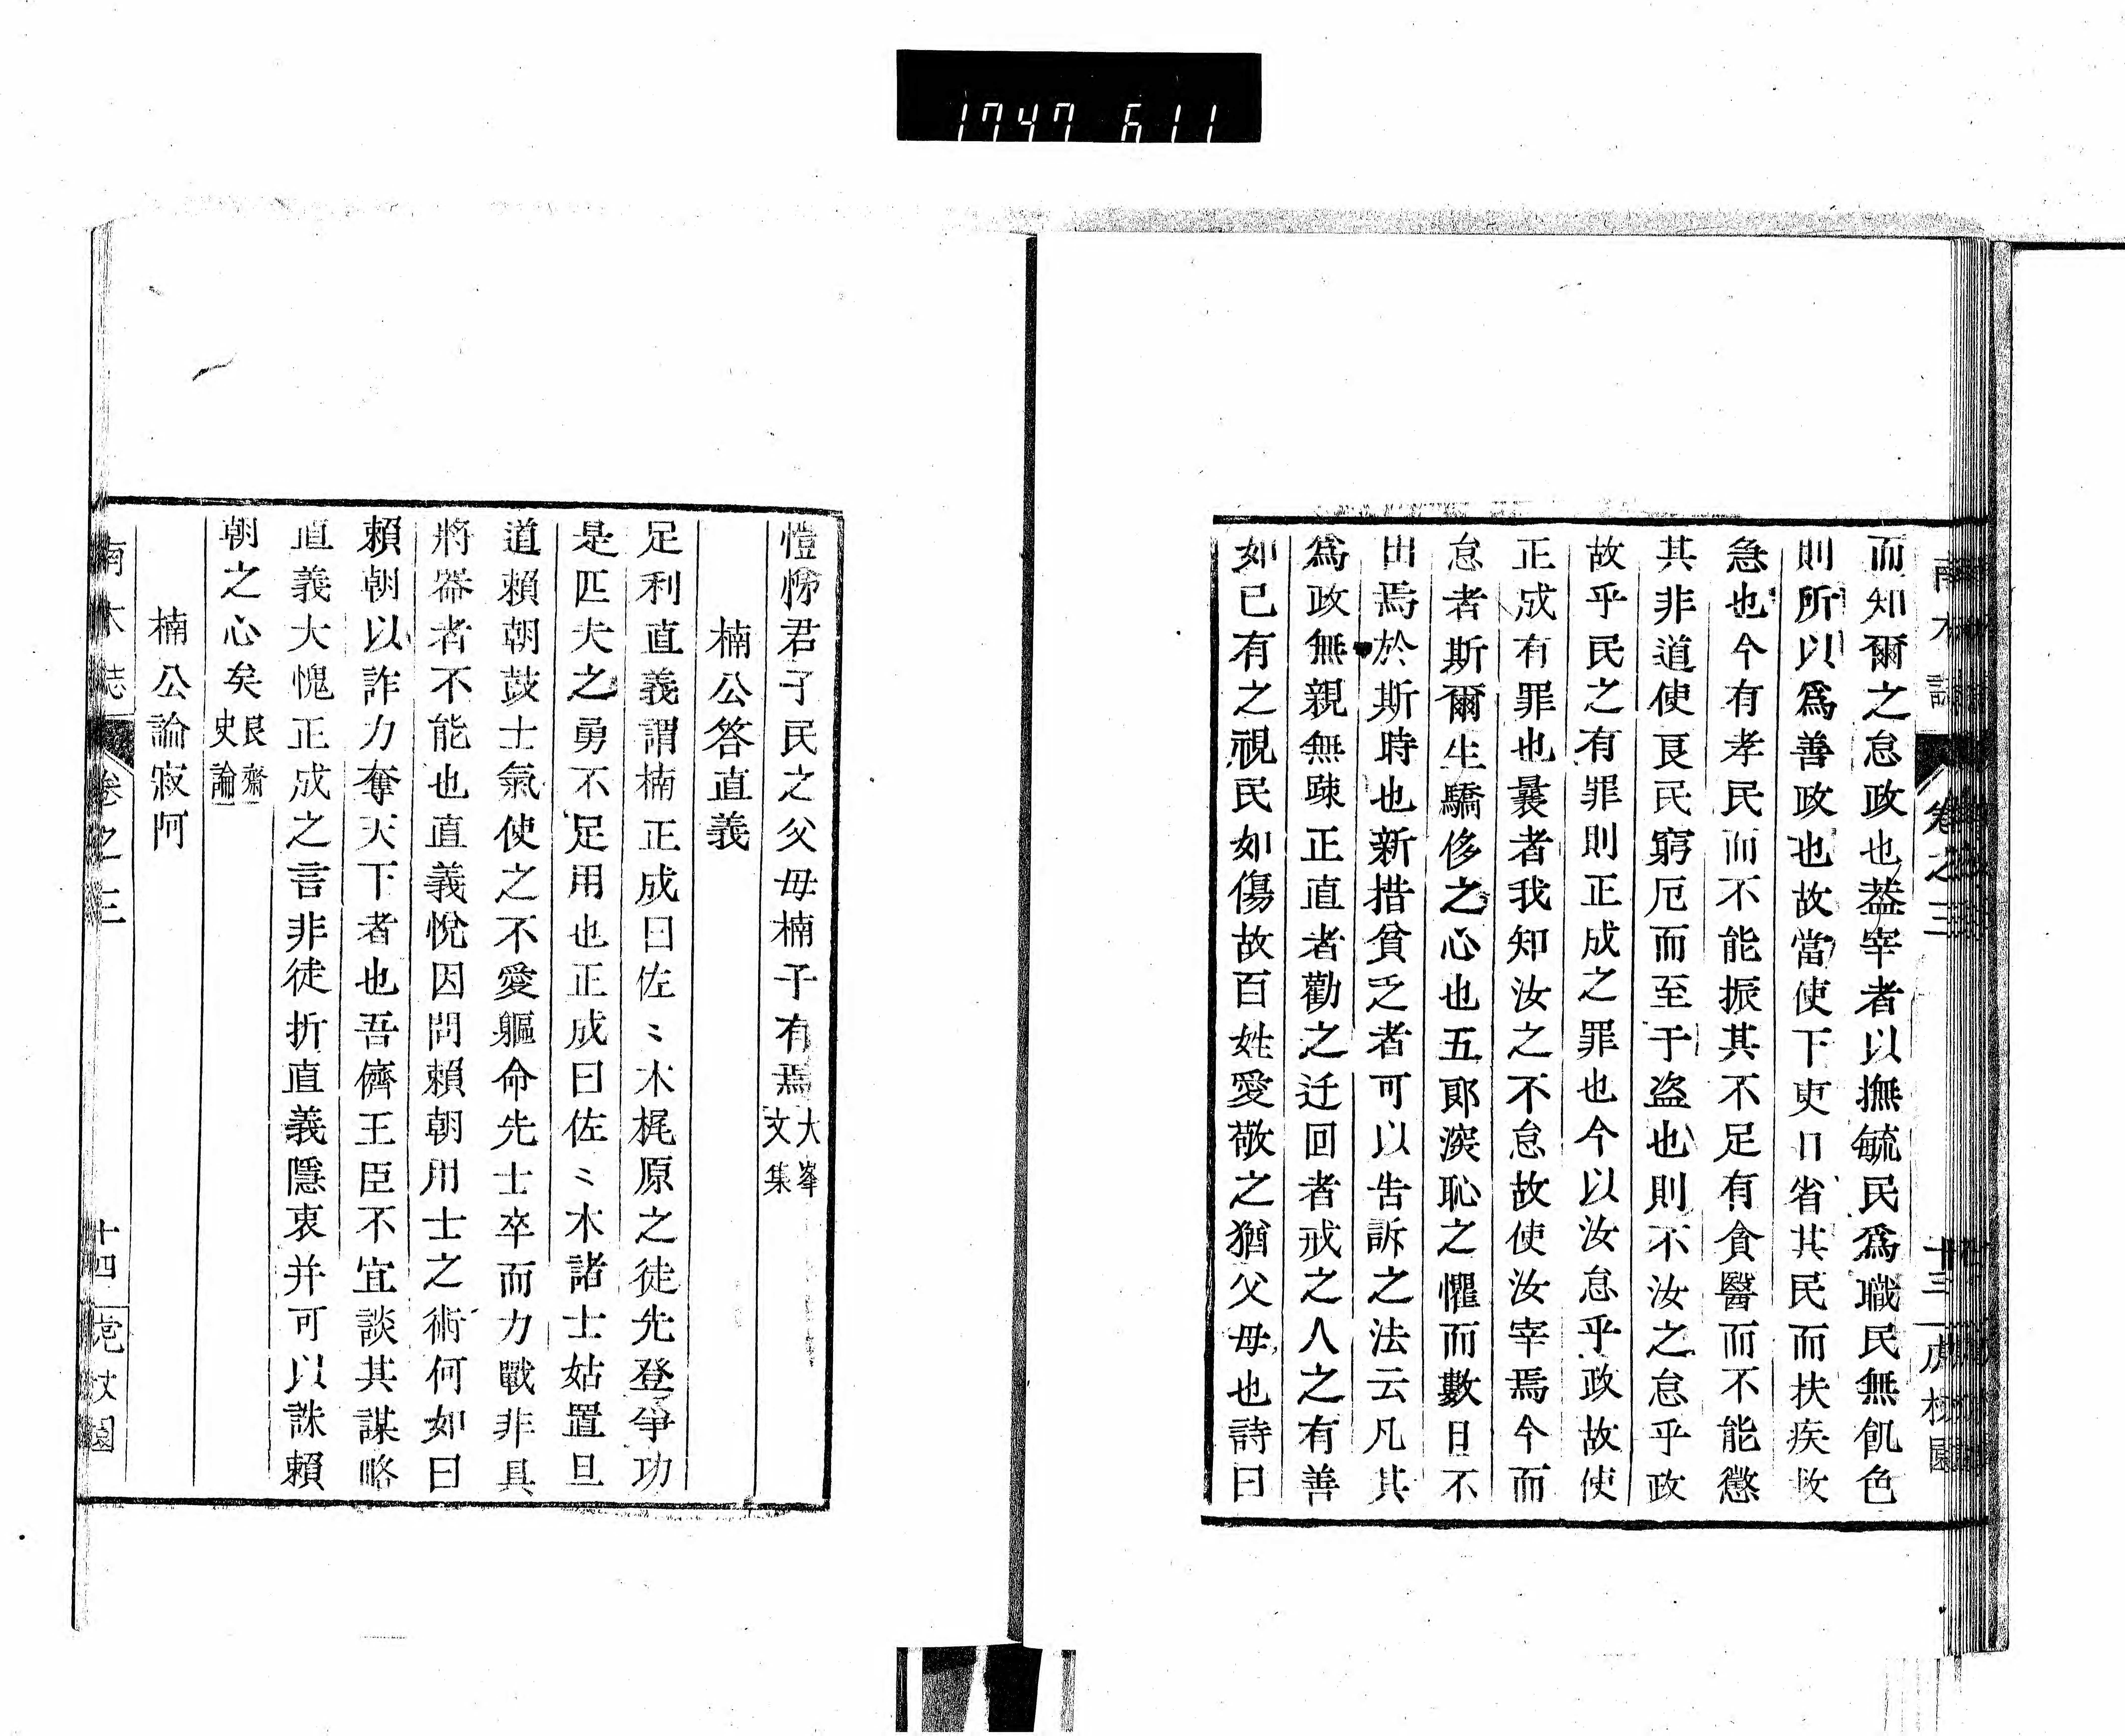 1747 611
南木誌 卷之三 十三 虎杖園
而知爾之怠政也葢宰者以撫毓民爲職民無飢色
則所以爲善政也故當使下吏日省其民而扶疾救
急也今有孝民而不能振其不足有貪醫而不能懲
其非道使良民窮厄而至于盗也則不汝之怠乎政
故乎民之有罪則正成之罪也今以汝怠乎政故使
正成有罪也曩者我知汝之不怠故使汝宰焉今而
怠者斯爾生驕侈之心也五郎深恥之懼而數日不
出焉於斯時也新措貧乏者可以告訴之法云凡其
爲政無親無踈正直者勸之迂回者戒之人之有善
如已有之視民如傷故百姓愛敬之猶父母也詩曰
愷悌君子民之父母楠子有焉大峯文集
楠公答直義
足利直義謂楠正成曰佐〻木梶原之徒先登爭功
是匹夫之勇不足用也正成曰佐〻木諸士姑置旦
道賴朝鼓士氣使之不愛軀命先士卒而力戰非具
將器者不能也直義悅因問賴朝用士之術何如曰
賴朝以詐力奪天下者也吾儕王臣不宜談其謀略
直義大愧正成之言非徒折直義隱衷并可以誅賴
朝之心矣艮齋史論
楠公論寂阿
南木誌 卷之三 十四 虎杖園